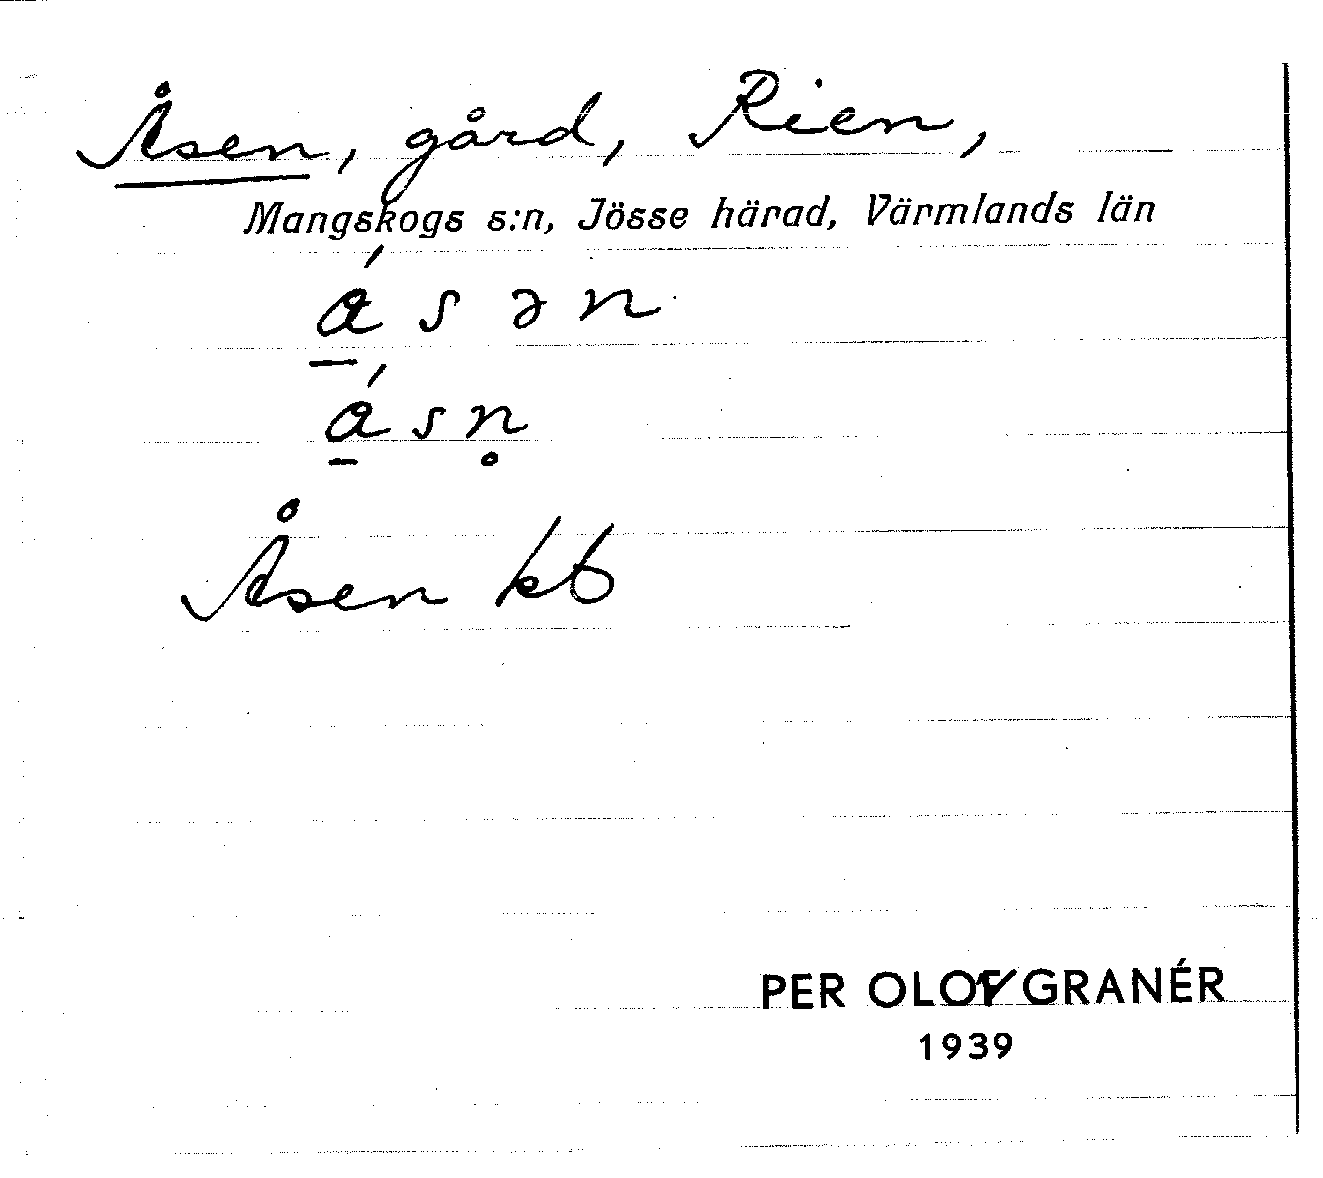 Åsen, gård, Rien,
Mangskogs s:n, Jösse härad, Värmlands län
á̱ s ə n
á̱ s n̥
Åsen kb
PER OLOV GRANÉR
1939